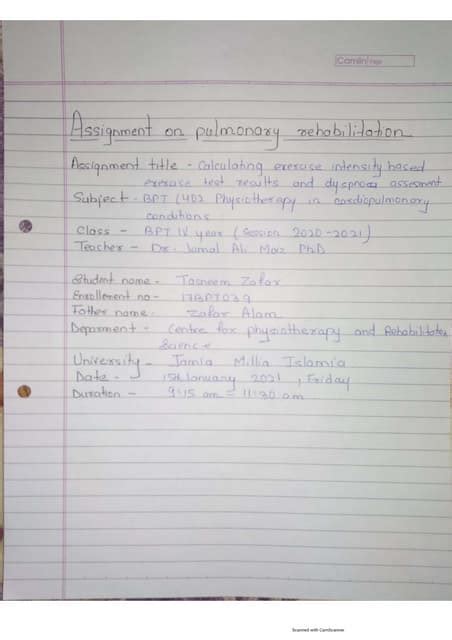 Camlin
Assignment on pulmonary rehabilitation
Assignment title - Calculating exercise intensity based
exercise test results and dyspnoea assesment
Subject - BPT 402 Physiotherapy in cardiopulmonary
conditions
Class - BPT IV year (Session 2020-2021)
Teacher - Dr. Jamal Ali Moiz PhD
Student name - Tasneem Zafar
Enrollement no - 17BPT039
Father name - Zafar Alam
Deparment - Centre for physiotherapy and Rehabilitation
Science
University - Jamia Millia Islamia
Date - 15th January 2021, Friday
Duration - 9:15 am - 11:30 am
Scanned with CamScanner